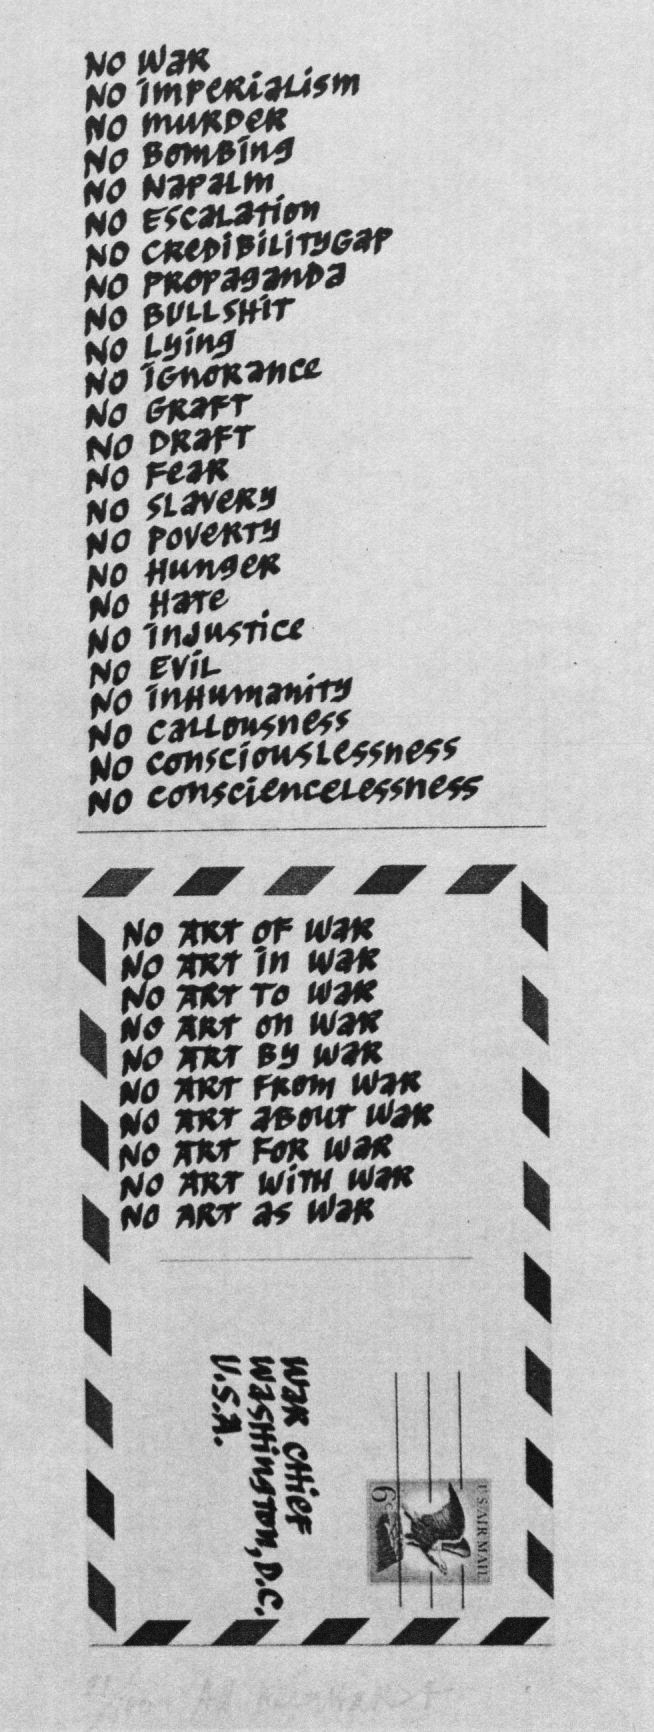 NO WAR
NO IMPERIALISM
NO MURDER
NO BOMBING
NO NAPALM
NO ESCALATION
NO CREDIBILITYGAP
NO PROPAGANDA
NO BULLSHIT
NO LYING
NO IGNORANCE
NO GRAFT
NO DRAFT
NO FEAR
NO SLAVERY
NO POVERTY
NO HUNGER
NO HATE
NO INJUSTICE
NO EVIL
NO INHUMANITY
NO CALLOUSNESS
NO CONSCIOUSLESSNESS
NO CONSCIENCELESSNESS
NO ART OF WAR
NO ART IN WAR
NO ART TO WAR
NO ART ON WAR
NO ART BY WAR
NO ART FROM WAR
NO ART ABOUT WAR
NO ART FOR WAR
NO ART WITH WAR
NO ART AS WAR
WAR CHIEF
WASHINGTON, D.C.
U.S.A.
US AIR MAIL
6c